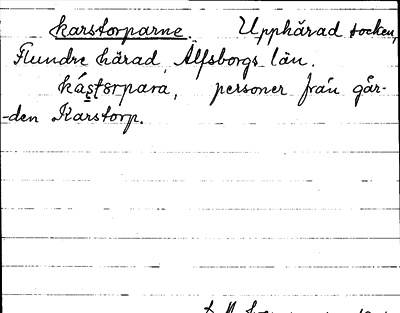 Karstorparne. Upphärad socken,
Flundre härad, Älfsborgs län.
personer från går-
-den Karstorp.